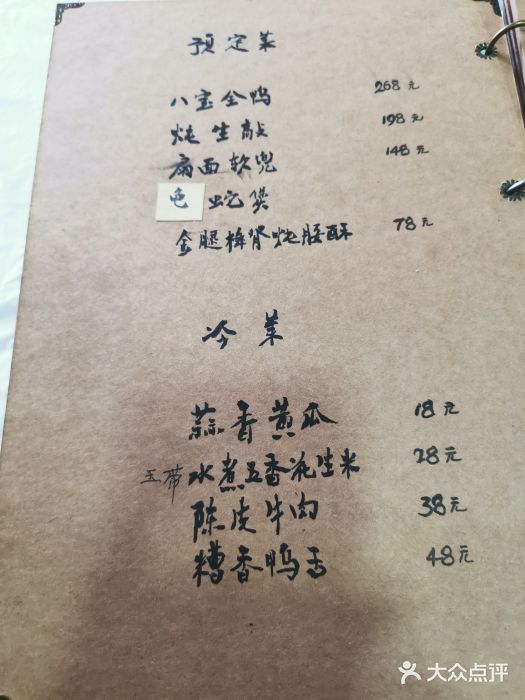 预定菜
八宝全鸭 268元
炖生敲 198元
扇面软兜 148元
色蛇煲
金腿梅肾炖腰酥 78元
冷菜
蒜香黄瓜 18元
玉带 水煮五香花生米 28元
陈皮牛肉 38元
糟香鸭舌 48元
大众点评